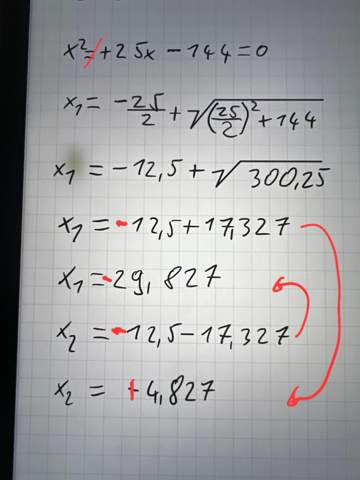 x²=+25x-144=0
x₁=-25/2+√((25/2)²+144)
x₁=-12,5+√300,25
x₁=-12,5+17,327
x₁=-29,827
x₂=-12,5-17,327
x₂=+4,827